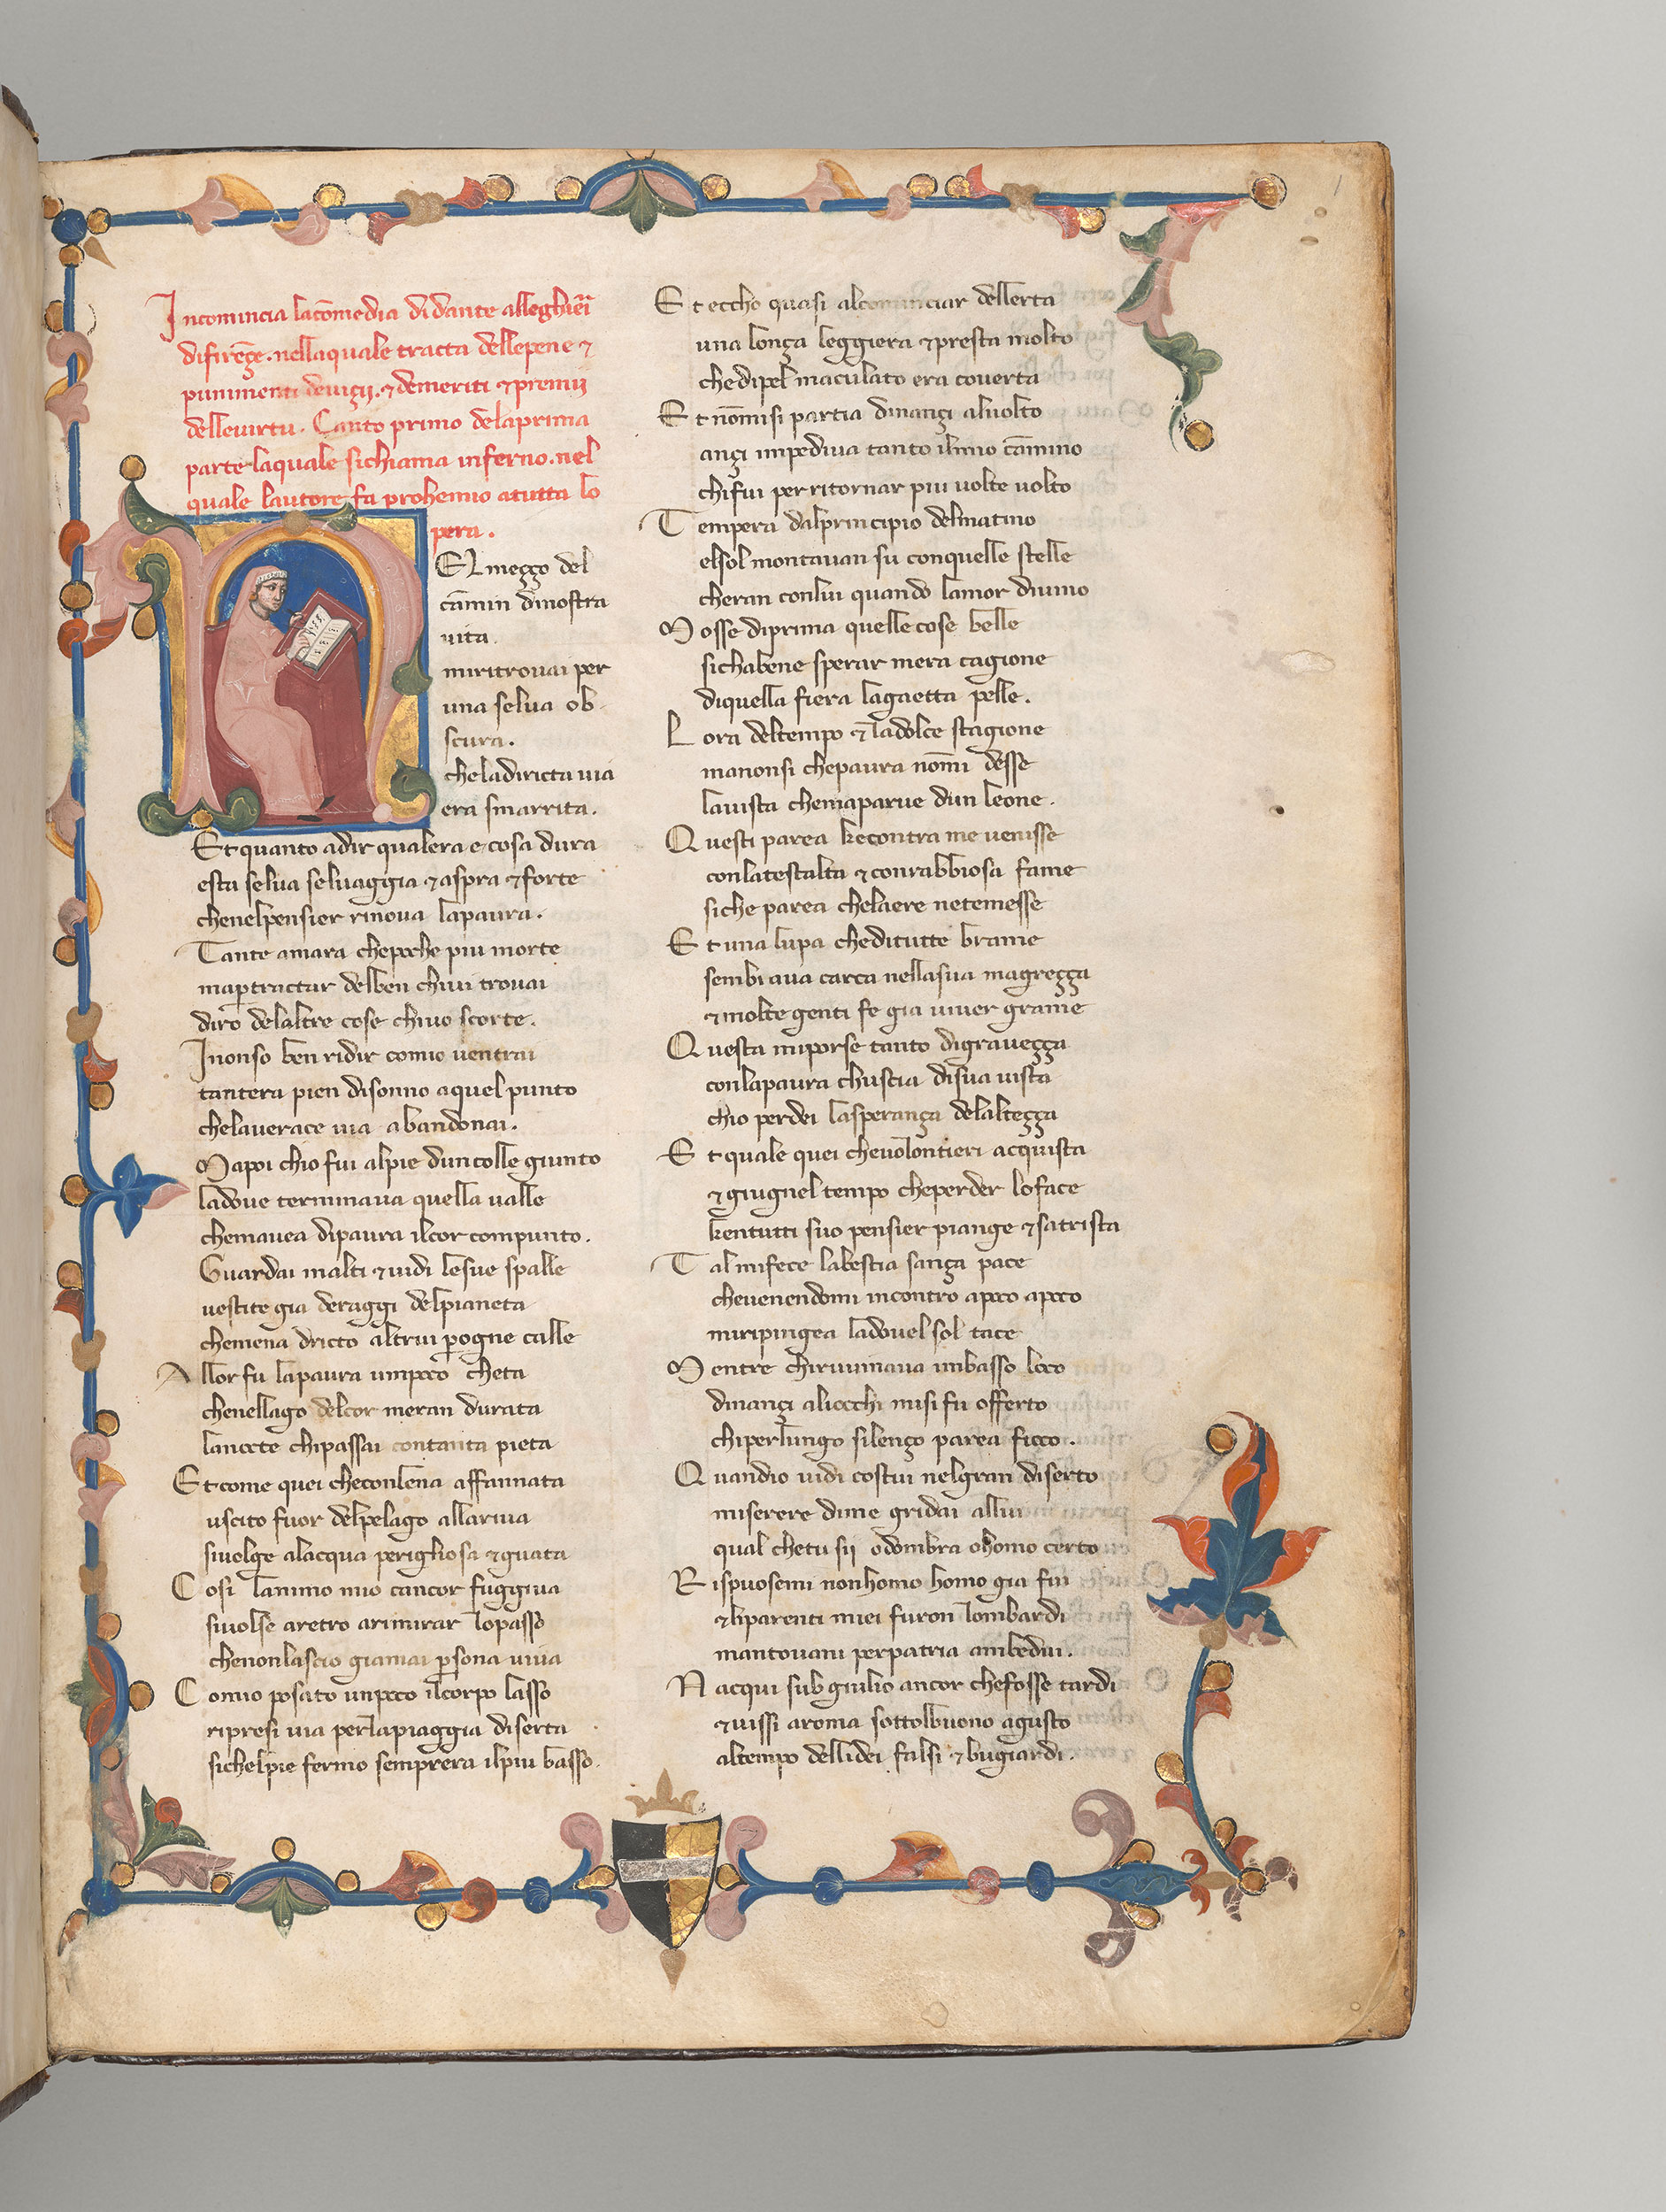 Incomincia la cōmedia di dante alleghieri
di firēçe. nella quale tracta delle pene ⁊
punimenti de uiçii. ⁊ demeriti ⁊ premii
delle uirtu. Canto primo dela prima
parte laquale si chiama inferno. nel
quale lautore fa prohemio a tutta lo
pera.
NEL meçço del
cāmin di nostra
uita
mi ritrouai per
una selua ob
scura.
che la diricta uia
era smarrita.
Et quanto a dir qualera e cosa dura
esta selua seluaggia ⁊ aspra ⁊ forte
che nel pensier rinoua la paura.
Tante amara che poche piu morte
ma ꝑ tractar del ben chiui trouai
diro delaltre cose chiuo scorte.
I non so ben ridir comio uentrai
tantera pien di sonno a quel punto
che la uerace uia abandonai.
Ma poi chio fui alpie dun colle giunto
la doue terminaua quella ualle
che mauea di paura il cor compunto.
Guardai in alti ⁊ uidi le sue spalle
uestite gia de raggi del pianeta
che mena dricto altrui ꝑ ogne calle
Allor fu la paura un poco cheta
che nel lago del cor meran durata
la nocte chi passai con tanta pieta
Et come quei che con lena affannata
uscito fuor del pelago alla riua
si uolge alacqua perigliosa ⁊ guata
Cosi lanimo mio cancor fuggiua
si uolse aretro a rimirar lo passo
che non lascio giamai ꝑsona uiua
Comio posato un poco il corpo lasso
ripresi uia per la piaggia diserta
siche l pie fermo semprera il piu basso.
Et eccho quasi al cominciar dellerta
una lonça leggiera ⁊ presta molto
che di pel maculato era couerta
Et nō mi si partia dinançi al uolto
ançi impediua tanto il mio cāmino
chi fui per ritornar piu uolte uolto
Tempera dal principio del matino
el sol montauan su con quelle stelle
cheran con lui quando lamor diuino
Mosse di prima quelle cose belle
si cha bene sperar mera cagione
di quella fiera la gaetta pelle.
Lora del tempo ⁊ la dolce stagione
ma non si che paura nōmi desse
la uista che maparue dun leone.
Questi parea ke contra me uenisse
con la testalta ⁊ con rabbiosa fame
si che parea che laere ne temesse
Et una lupa che di tutte brame
sembiaua carca nella sua magreçça
⁊ molte genti fe gia uiuer grame
Questa mi porse tanto di graueçça
con la paura chuscia di sua uista
chio perdei la sperança del alteçça
Et quale quei che uolontieri acquista
⁊ giugnel tempo che perder lo face
ken tutti suo pensier piange ⁊ satrista
Tal mi fece la bestia sança pace
che uenendomi incontro a poco a poco
mi ripingea la douel sol tace
Mentre chi ruuinaua in basso loco
dinançi aliocchi mi si fu offerto
chi per lungo silenço parea fioco.
Quandio uidi costui nel gran diserto
miserere di me gridai allui
qual che tu sii od ombra o homo certo
Rispuosemi non homo homo gia fui
⁊ li parenti miei furon lombardi
mantouani per patria ambedui.
Nacqui sub giulio ancor che fosse tardi
⁊ uissi a roma sottol buono agusto
al tempo delli dei falsi ⁊ bugiardi.
1